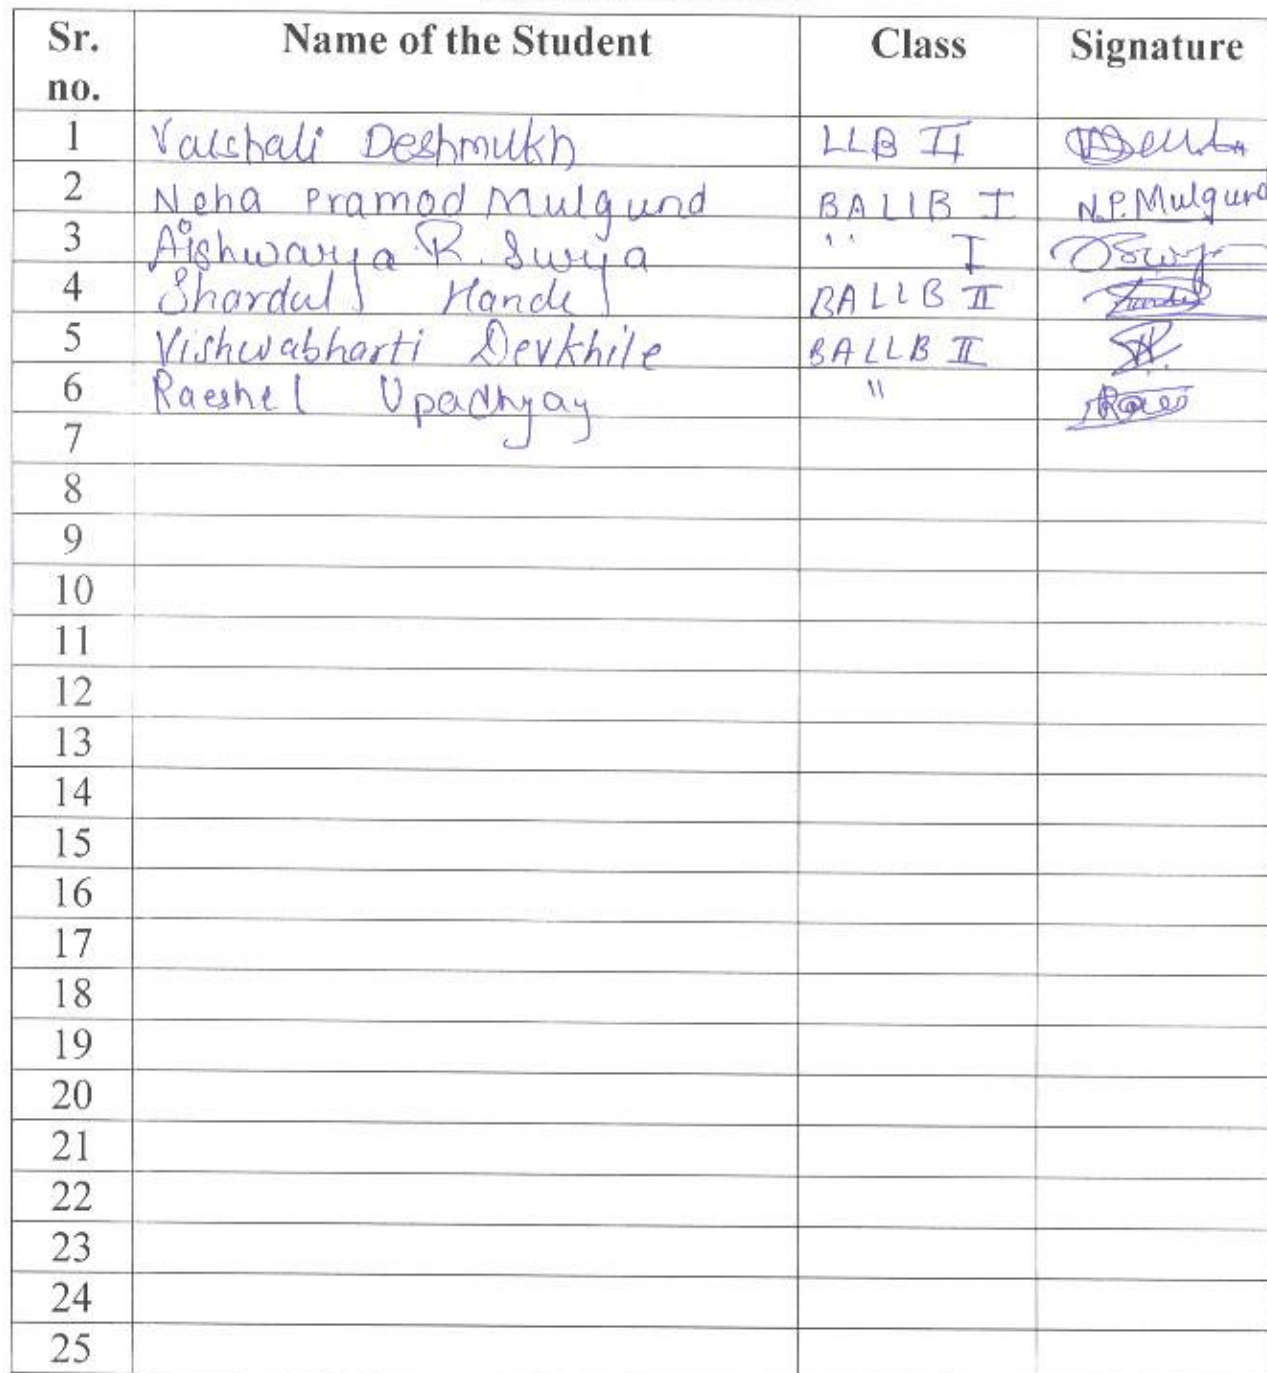 Sr. no. Name of the Student Class Signature
1 Vaishali Deshmukh LLB II
2 Neha Pramod Mulgund BALLB I N.P. Mulgund
3 Aishwarya R. Surya " I
4 Shardul Hande BALLB II
5 Vishwabharti Devkhile BALLB II
6 Raeshel Upadhyay "
7
8
9
10
11
12
13
14
15
16
17
18
19
20
21
22
23
24
25